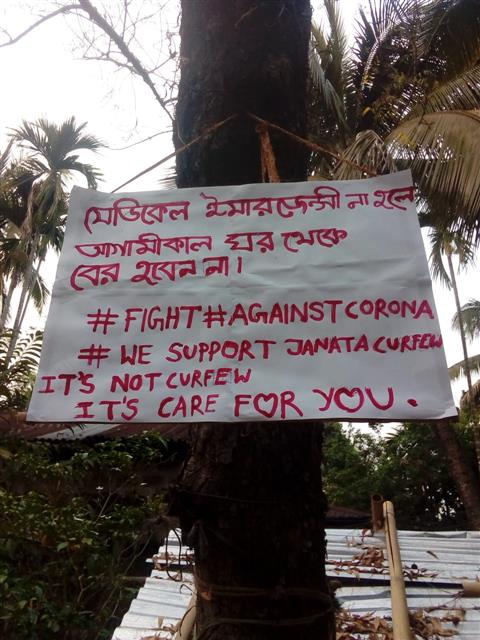 মেডিকেল ইমারজেন্সী না হলে
আগামীকাল ঘর থেকে
বের হবেন না।
# FIGHT # AGAINST CORONA
# WE SUPPORT JANATA CURFEW
IT'S NOT CURFEW
IT'S CARE FOR YOU.